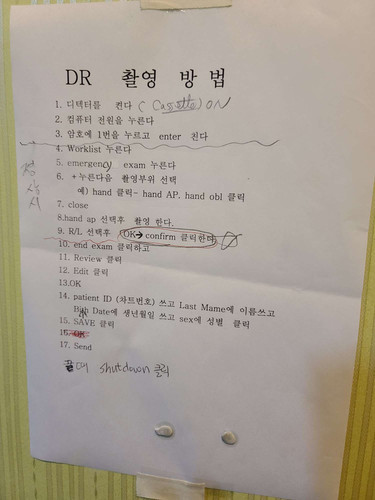 DR 촬영 방법
1. 디텍터를 켠다 (Cassette) ON
2. 컴퓨터 전원을 누른다
3. 암호에 1번을 누르고 enter 친다
4. Worklist 누른다
5. emergency exam 누른다
6. +누른다음 촬영부위 선택
예) hand 클릭- hand AP, hand obl 클릭
7. close
8.hand ap 선택후 촬영 한다.
9. R/L 선택후 OK→ confirm 클릭한다
10. end exam 클릭하고
11. Review 클릭
12. Edit 클릭
13.OK
14. patient ID (차트번호) 쓰고 Last Mame에 이름쓰고
Birth Date에 생년월일 쓰고 sex에 성별 클릭
15. SAVE 클릭
16. OK
17. Send
끌때 shutdown 클릭